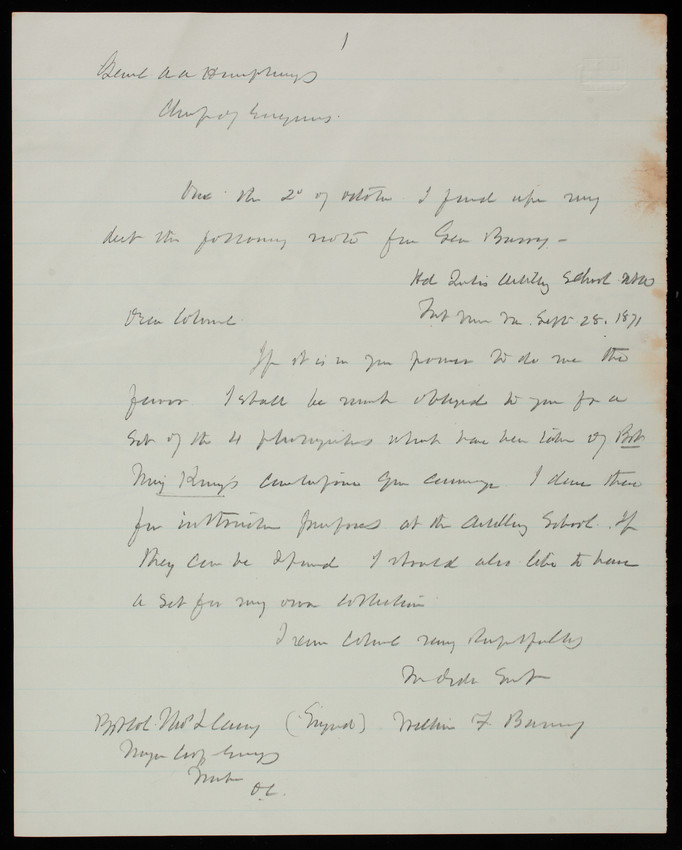 1
Genl A A Humphreys
Chief of Engineers.
One the 2d of October I found upon my
desk the following note from Gen Barry –
Hd Qutrs Artillery School USA
Fort Mon Va. Sept 28. 1871
Dear Colonel
If it is in your power to do me the
favor I shall be much obliged to you for a
set of the 4 photographs which have been taken of Bvt
Maj King's counterpoise gun carriage. I desire them
for instruction purposes at the Artillery School. If
they can be spared I should also like to have
a set for my own collection
I remain Colonel very respectfully
Your obdt Servt
Bvt Col. Thos L Casey (Signed) William F Barry
Major Corps Engrs
Wash
D.C.